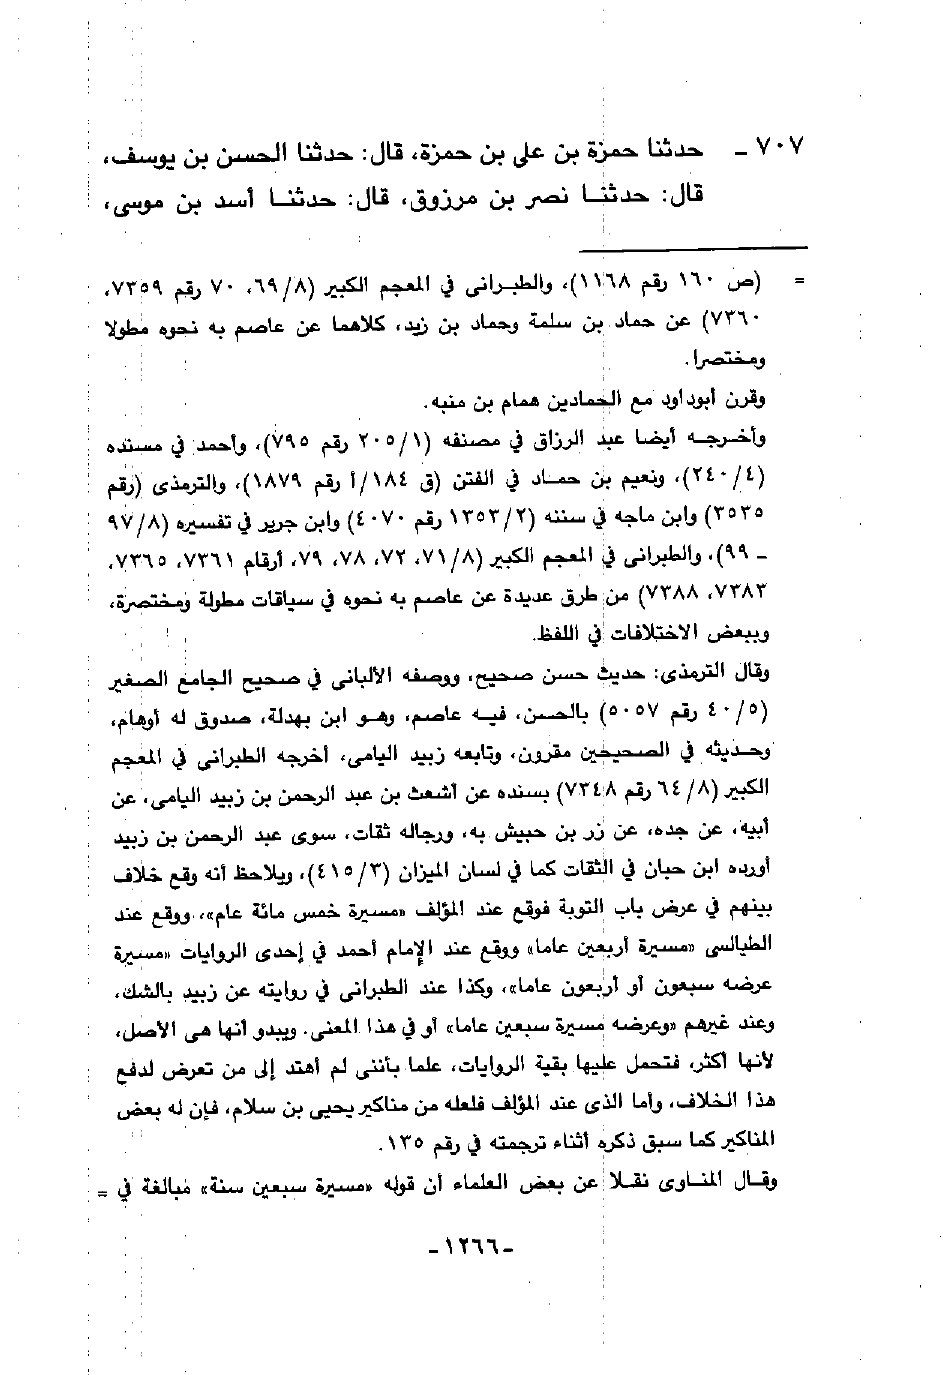 ٧٠٧ ـ حدثنا حمزة بن على بن حمزة، قال: حدثنا الحسن بن يوسف،
قال: حدثنـا نصر بن مرزوق، قال: حدثنـا أسد بن موسى،
= (ص ١٦٠ رقم ١١٦٨)، والطبـرانى في المعجم الكبير (٨/ ٦٩، ٧٠ رقم ٧٣٥٩،
٧٣٦٠) عن حماد بن سلمة وحماد بن زيد، كلاهما عن عاصم به نحوه مطولا
ومختصرا.
وقرن أبوداود مع الحمادين همام بن منبه.
وأخـرجـه أيضا عبد الرزاق في مصنفه (١/ ٢٠٥ رقم ٧٩٥)، وأحمد في مسنده
(٤/ ٢٤٠)، ونعيم بن حمـاد في الفتن (ق ١٨٤/أ رقم ١٨٧٩)، والترمذى (رقم
٣٥٣٥) وابن ماجه في سننه (٢/ ١٣٥٣ رقم ٤٠٧٠) وابن جرير في تفسيره (٨/ ٩٧
ـ ٩٩)، والطبرانى في المعجم الكبير (٨/ ٧١، ٧٢، ٧٨، ٧٩، أرقام ٧٣٦١، ٧٣٦٥،
٧٣٨٣، ٧٣٨٨) من طرق عديدة عن عاصم به نحوه في سياقات مطولة ومختصرة،
وببعض الاختلافات في اللفظ.
وقال الترمذى: حديث حسن صحيح، ووصفه الألبانى في صحيح الجامع الصغير
(٥/ ٤٠ رقم ٥٠٥٧) بالحسن، فيـه عاصم، وهـو ابن بهدلة، صدوق له أوهام،
وحـديثه في الصحيحين مقرون، وتابعه زبيد اليامى، أخرجه الطبرانى في المعجم
الكبير (٨/ ٦٤ رقم ٧٣٤٨) بسنده عن أشعث بن عبد الرحمن بن زبيد اليامى، عن
أبيه، عن جده، عن زر بن حبيش به، ورجاله ثقات، سوى عبد الرحمن بن زبيد
أورده ابن حبان في الثقات كما في لسان الميزان (٣/ ٤١٥)، ويلاحظ أنه وقع خلاف
بينهم في عرض باب التوبة فوقع عند المؤلف «مسيرة خمس مائة عام»، ووقع عند
الطيالسى «مسيرة أربعين عاما» ووقع عند الإمام أحمد في إحدى الروايات «مسيرة
عرضه سبعون أو أربعون عاما»، وكذا عند الطبرانى في روايته عن زبيد بالشك،
وعند غيرهم «وعرضه مسيرة سبعين عاما» أو في هذا المعنى. ويبدو أنها هى الأصل،
لأنها أكثر، فتحمل عليها بقية الروايات، علما بأننى لم أهتد إلى من تعرض لدفع
هذا الخلاف، وأما الذى عند المؤلف فلعله من مناكير يحيى بن سلام، فإن له بعض
المناكير كما سبق ذكره أثناء ترجمته في رقم ١٣٥.
وقـال المنـاوى نقـلا عن بعض العلماء أن قوله «مسيرة سبعين سنة» مبالغة في =
-١٢٦٦-